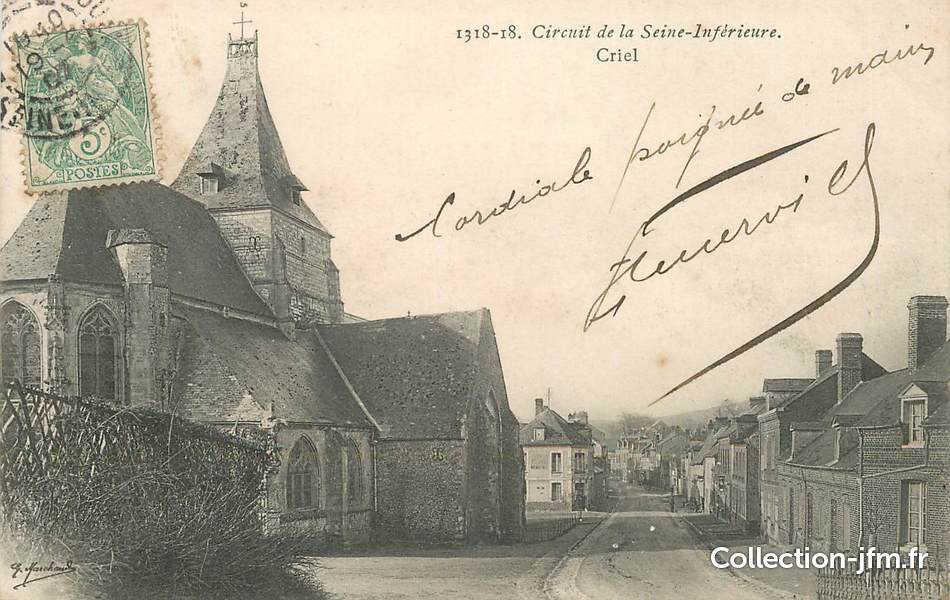 1318-18. Circuit de la Seine-Inférieure.
Criel
Cordiale poignée de main
5c
POSTES
Collection-jfm.fr